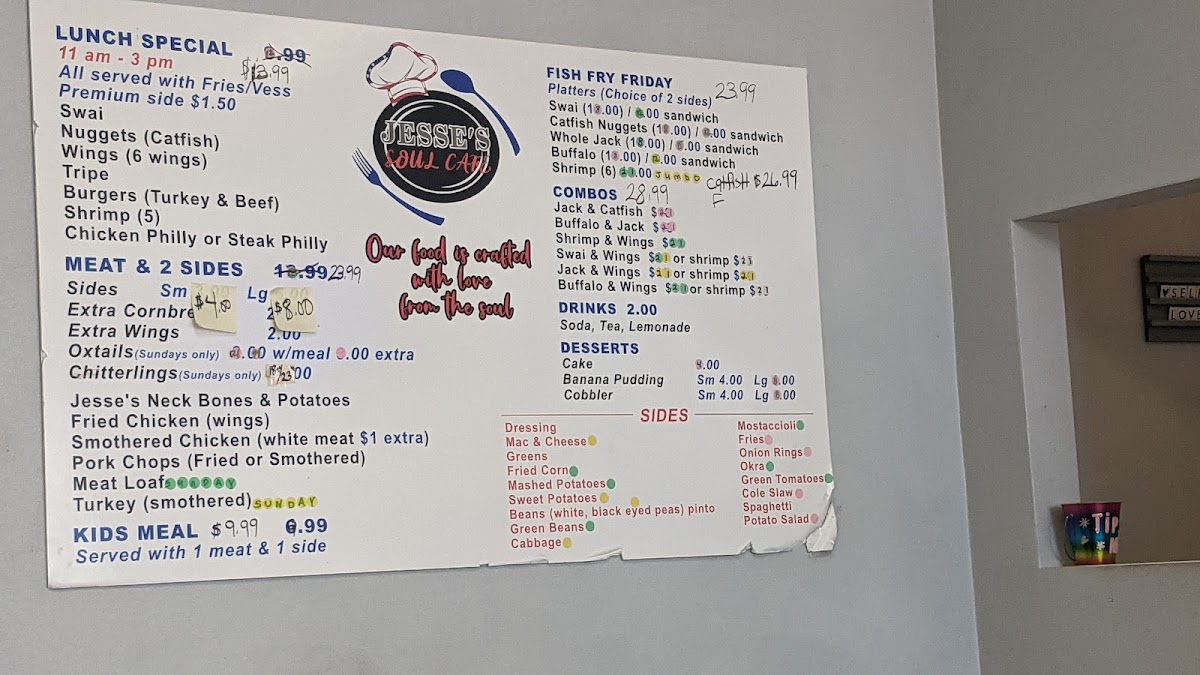 LUNCH SPECIAL .99
11 am - 3 pm $13.99
All served with Fries/Vess
Premium side $1.50
Swai
Nuggets (Catfish)
Wings (6 wings)
Tripe
Burgers (Turkey & Beef)
Shrimp (5)
Chicken Philly or Steak Philly
MEAT & 2 SIDES 13.99 23.99
Sides Sm $4.00 Lg $8.00
Extra Cornbre
Extra Wings 2.00
Oxtails (Sundays only) .00 w/meal .00 extra
Chitterlings (Sundays only) 00
Jesse's Neck Bones & Potatoes
Fried Chicken (wings)
Smothered Chicken (white meat $1 extra)
Pork Chops (Fried or Smothered)
Meat Loaf
Turkey (smothered) SUNDAY
KIDS MEAL $9.99 6.99
Served with 1 meat & 1 side
JESSE'S
SOUL CAFE
Our food is crafted
with love
from the soul
FISH FRY FRIDAY
Platters (Choice of 2 sides) 23.99
Swai .00) / .00 sandwich
Catfish Nuggets .00) / .00 sandwich
Whole Jack .00) / .00 sandwich
Buffalo .00) / .00 sandwich
Shrimp (6) 21.00 JUMBO Catfish $26.99
F
COMBOS 28.99
Jack & Catfish $21
Buffalo & Jack $21
Shrimp & Wings $21
Swai & Wings $21 or shrimp $23
Jack & Wings $21 or shrimp $21
Buffalo & Wings $21 or shrimp $23
DRINKS 2.00
Soda, Tea, Lemonade
DESSERTS
Cake .00
Banana Pudding Sm 4.00 Lg .00
Cobbler Sm 4.00 Lg .00
SIDES
Dressing
Mac & Cheese
Greens
Fried Corn
Mashed Potatoes
Sweet Potatoes
Beans (white, black eyed peas) pinto
Green Beans
Cabbage
Mostaccioli
Fries
Onion Rings
Okra
Green Tomatoes
Cole Slaw
Spaghetti
Potato Salad
♥SEL
LOVE
Tip